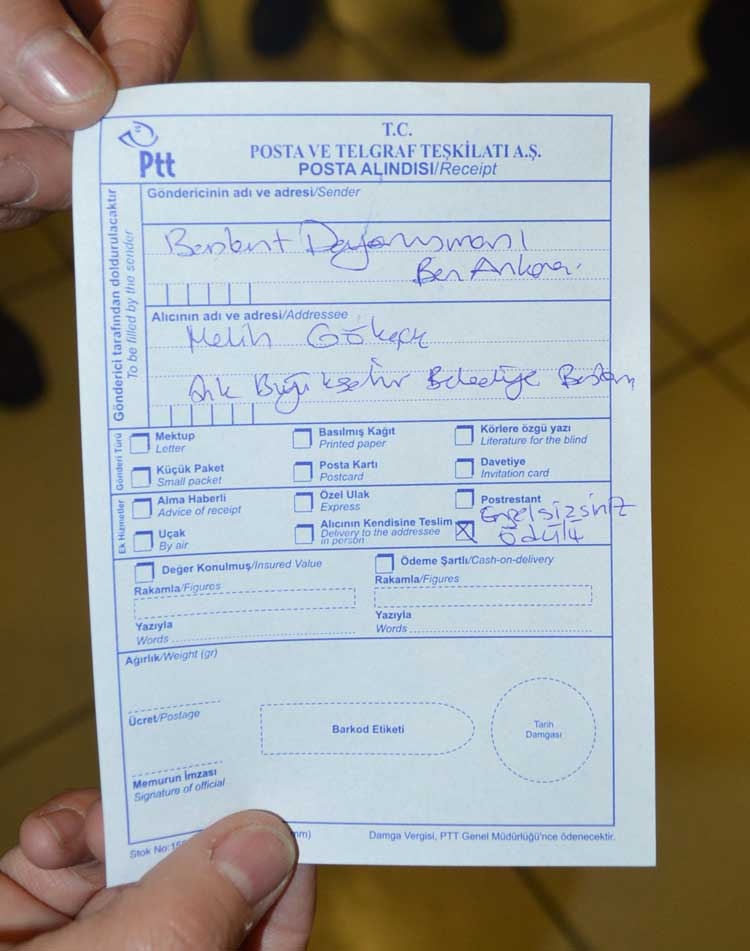 Ptt
T.C.
POSTA VE TELGRAF TEŞKİLATI A.Ş.
POSTA ALINDISI/Receipt
Gönderici tarafından doldurulacaktır
To be filled by the sender
Göndericinin adı ve adresi/Sender
Başkent Dayanışması
Ben Ankara
Alıcının adı ve adresi/Addressee
Melih Gökçek
Büyükşehir Belediye Başkanı
Gönderi Türü
Mektup
Letter
Basılmış Kağıt
Printed paper
Körlere özgü yazı
Literature for the blind
Küçük Paket
Small packet
Posta Kartı
Postcard
Davetiye
Invitation card
Ek Hizmetler
Alma Haberli
Advice of receipt
Özel Ulak
Express
Postrestant
Uçak
By air
Alıcının Kendisine Teslim
Delivery to the addressee
in person
Engelsizsiniz
Ödülü
Değer Konulmuş/Insured Value
Ödeme Şartlı/Cash-on-delivery
Rakamla/Figures
Rakamla/Figures
Yazıyla
Words
Yazıyla
Words
Ağırlık/Weight (gr)
Ücret/Postage
Barkod Etiketi
Tarih
Damgası
Memurun İmzası
Signature of official
Stok No:
Damga Vergisi, PTT Genel Müdürlüğü'nce ödenecektir.